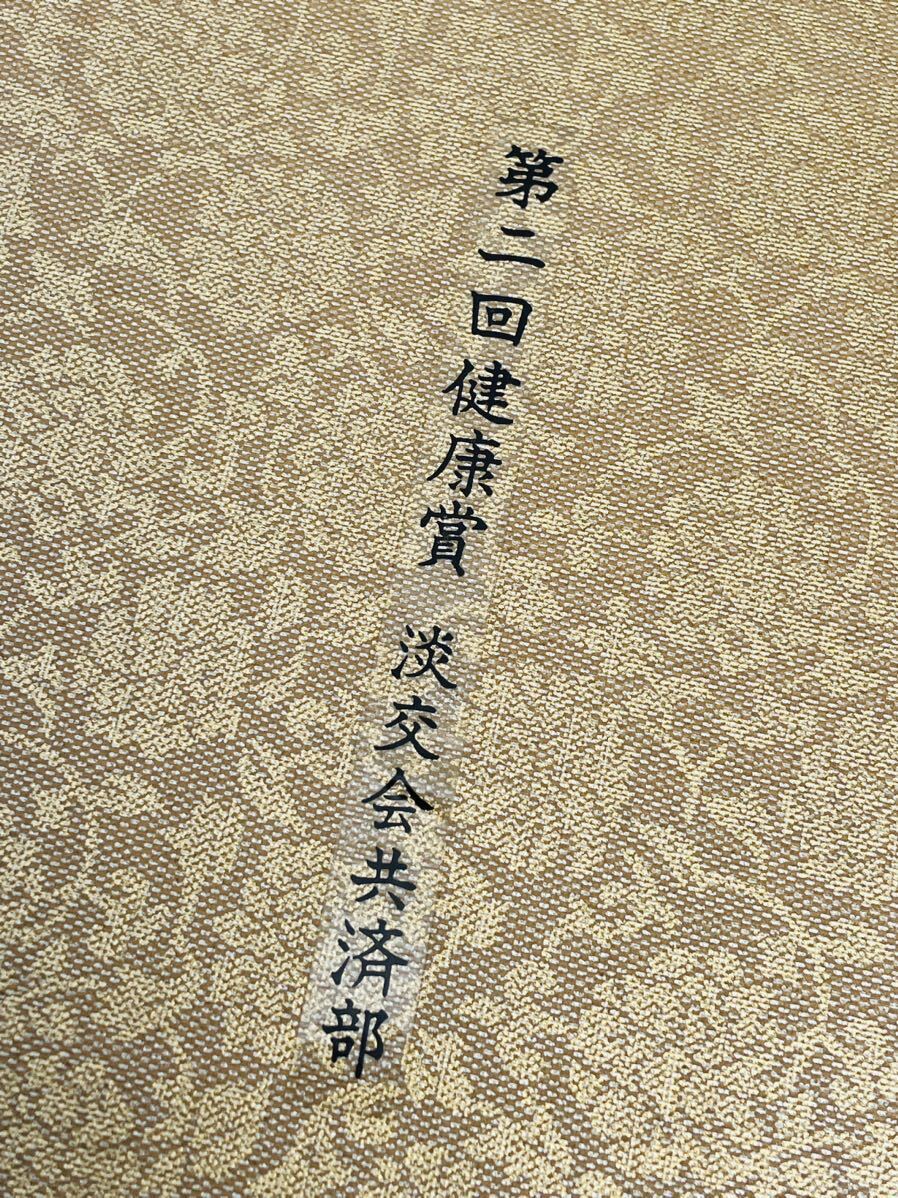 第二回健康賞　淡交会共済部